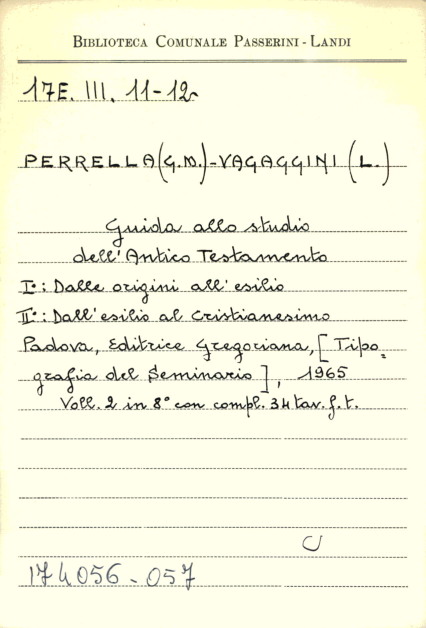 BIBLIOTECA COMUNALE PASSERINI - LANDI
17E. III. 11-12
PERRELLA (G.M.) - VAGAGGINI (L.)
Guida allo studio
dell'Antico Testamento
I°: Dalle origini all'esilio
II°: Dall'esilio al Cristianesimo
Padova, Editrice Gregoriana, [Tipo=
grafia del Seminario], 1965
Voll. 2 in 8° con compl. 34 tav. f. t.
174056-057